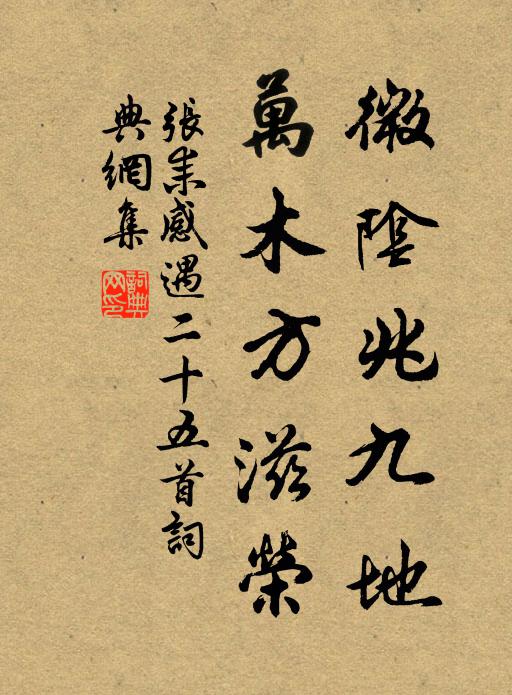 微陰兆九地
萬木方滋榮
張耒感遇二十五首詞
典網集
詞典
网印